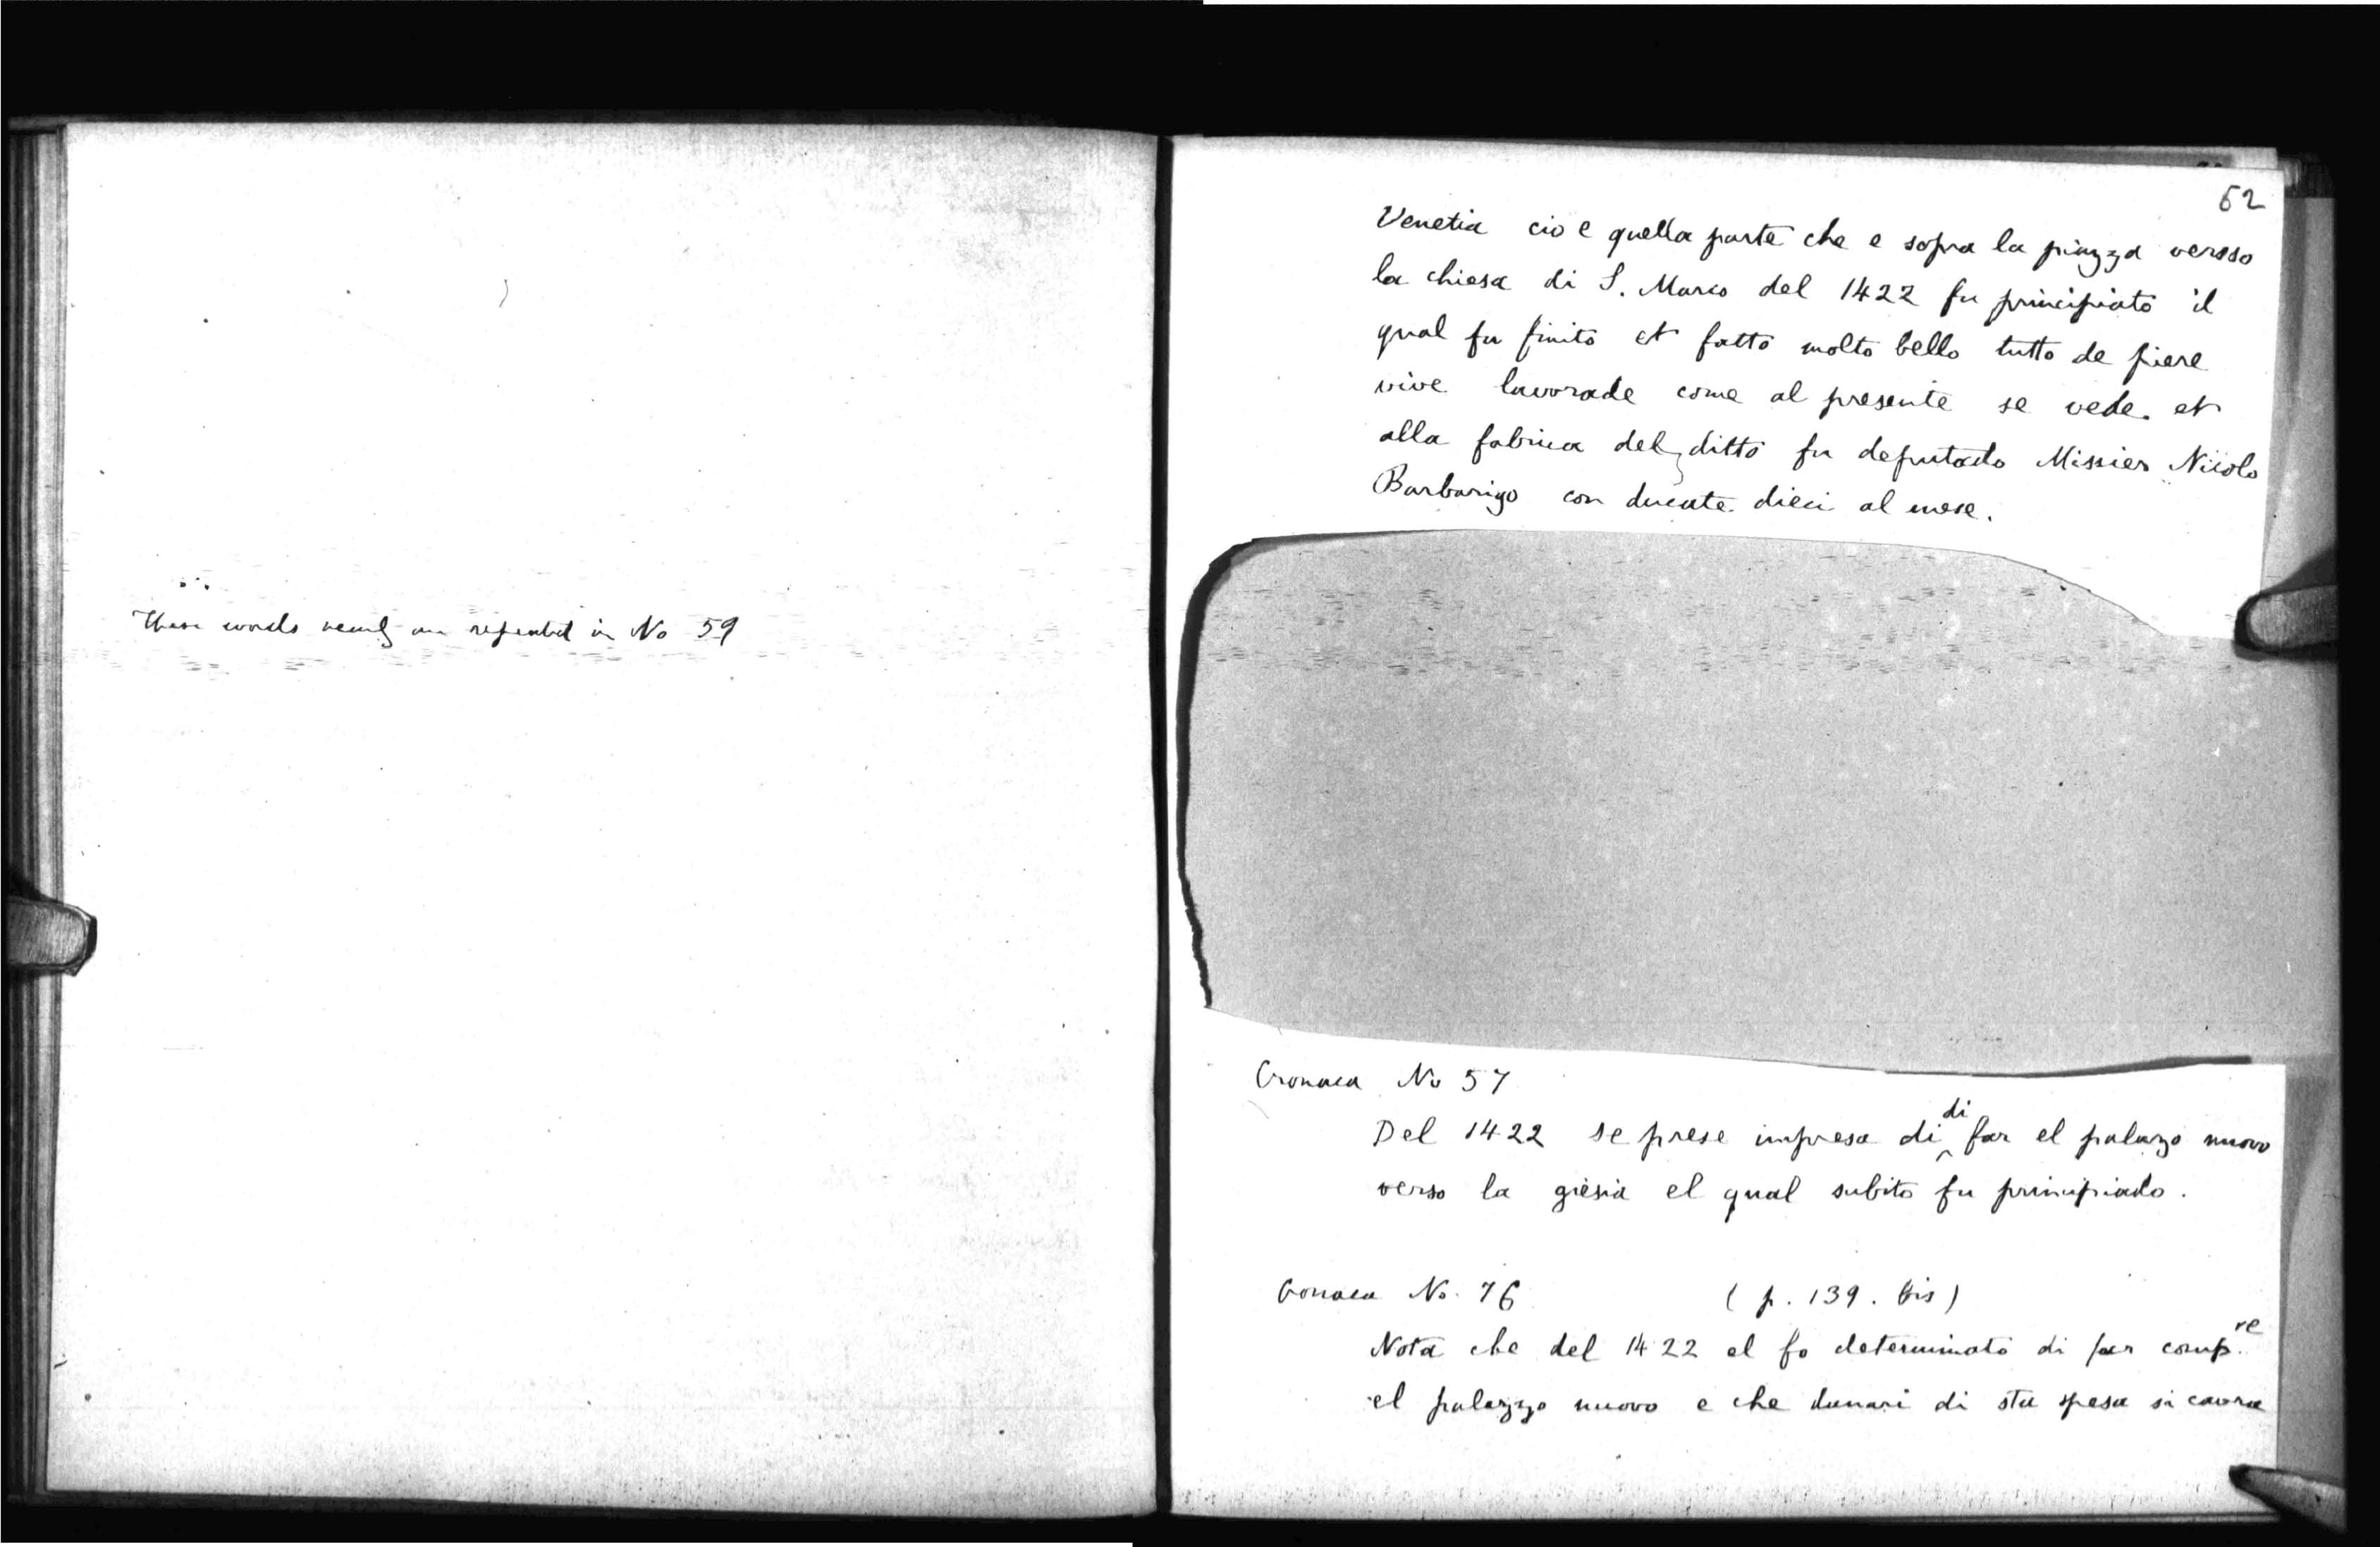 These words nearly are repeated in No 59
62
Venetia cio e quella parte che e sopra la piazza versso
la chiesa di S. Marco del 1422 fu principiato il
qual fu finito et fatto molto bello tutto de piere
vive lavorade come al presente se vede. et
alla fabrica del ditto fu deputado Missier Nicolo
Barbarigo con ducate dieci al mese.
Cronaca No 57
Del 1422 se prese impresa di di far el palazo nuovo
verso la giesia el qual subito fu principiado.
Cronaca No. 76 (p. 139. bis)
Nota che del 1422 el fo determinato di far comp.re
el palazzo nuovo e che danari di sta spesa si cavra